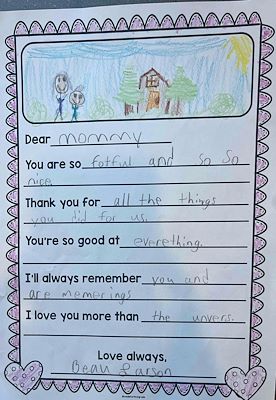 Dear mommy
You are so fotful and so so
nice.
Thank you for all the things
you did for us.
You're so good at everething.
I'll always remember you and
are memerings
I love you more than the unvers.
Love always,
Beau Larson